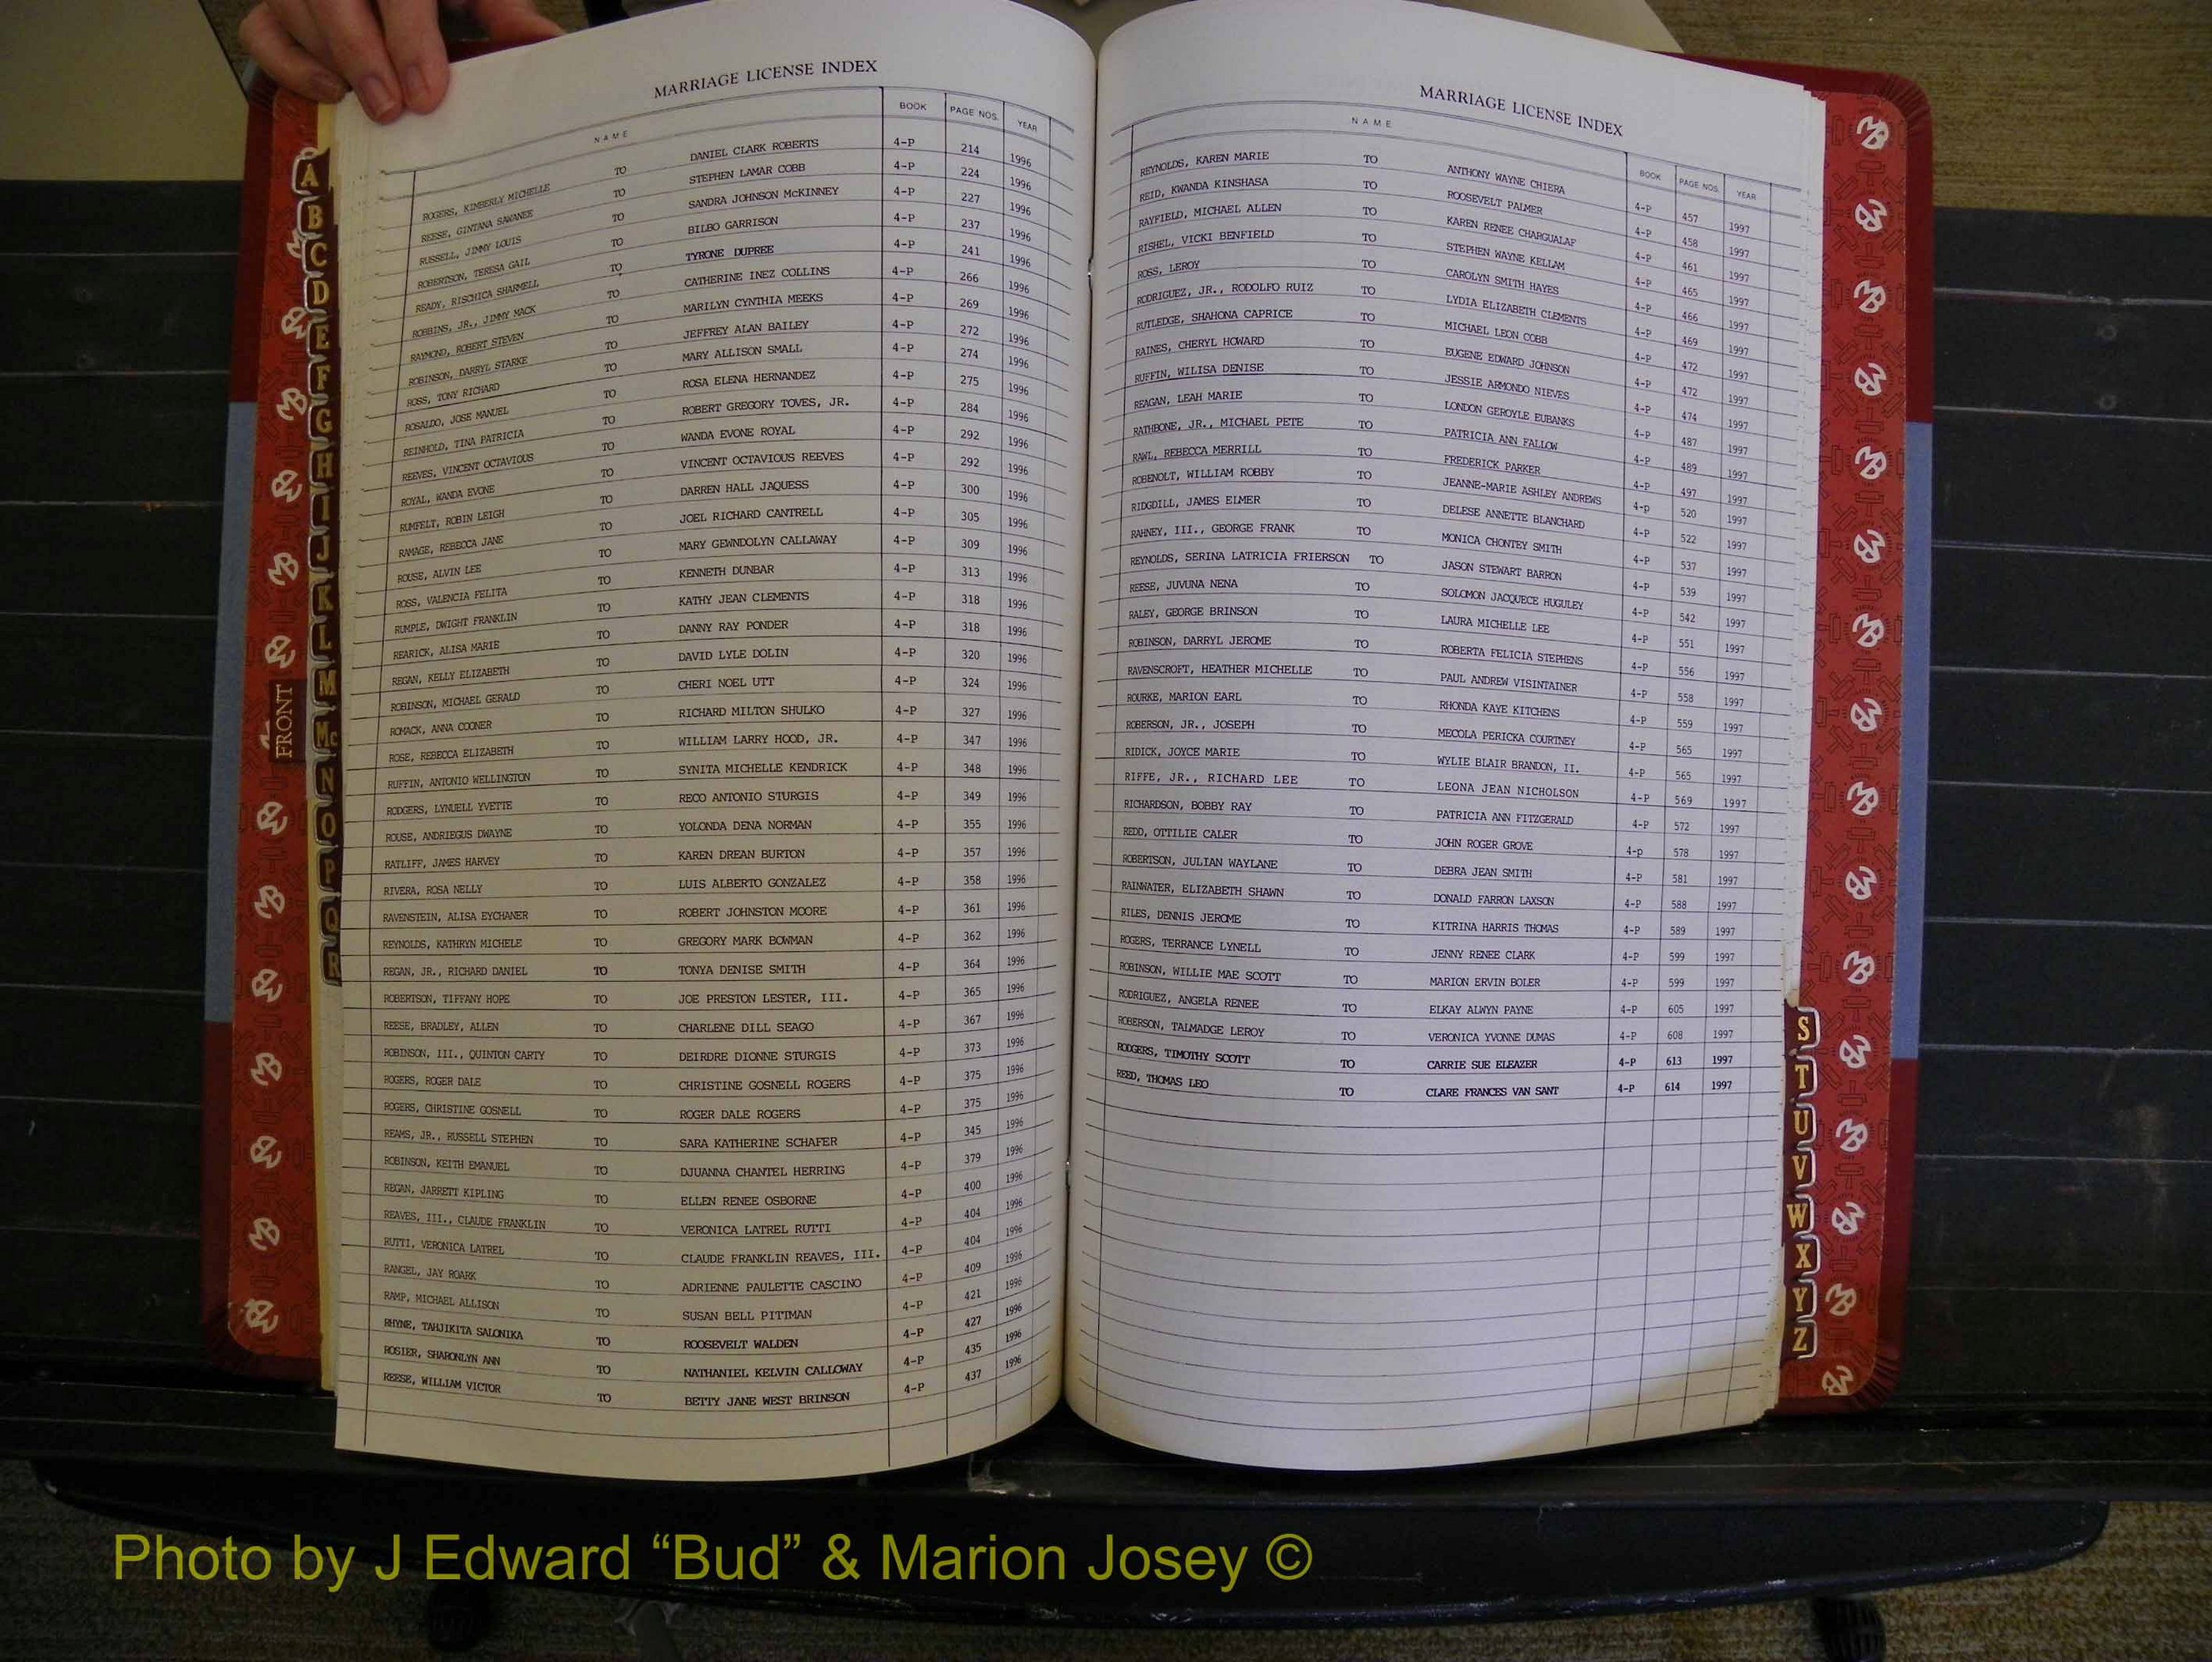 MARRIAGE LICENSE INDEX
NAME BOOK PAGE NOS. YEAR
ROGERS, KIMBERLY MICHELLE TO DANIEL CLARK ROBERTS 4-P 214 1996
REESE, GINTANA SAVANEE TO STEPHEN LAMAR COBB 4-P 224 1996
RUSSELL, JIMMY LOUIS TO SANDRA JOHNSON McKINNEY 4-P 227 1996
ROBERTSON, TERESA GAIL TO BILBO GARRISON 4-P 237 1996
READY, RISCHICA SHARMELL TO TYRONE DUPREE 4-P 241 1996
ROBBINS, JR., JIMMY MACK TO CATHERINE INEZ COLLINS 4-P 266 1996
RAYMOND, ROBERT STEVEN TO MARILYN CYNTHIA MEEKS 4-P 269 1996
ROBINSON, DARRYL STARKE TO JEFFREY ALAN BAILEY 4-P 272 1996
ROSS, TONY RICHARD TO MARY ALLISON SMALL 4-P 274 1996
ROSALDO, JOSE MANUEL TO ROSA ELENA HERNANDEZ 4-P 275 1996
REINHOLD, TINA PATRICIA TO ROBERT GREGORY TOVES, JR. 4-P 284 1996
REEVES, VINCENT OCTAVIOUS TO WANDA EVONE ROYAL 4-P 292 1996
ROYAL, WANDA EVONE TO VINCENT OCTAVIOUS REEVES 4-P 292 1996
RUMFELT, ROBIN LEIGH TO DARREN HALL JAQUESS 4-P 300 1996
RAMAGE, REBECCA JANE TO JOEL RICHARD CANTRELL 4-P 305 1996
ROUSE, ALVIN LEE TO MARY GEWNDOLYN CALLAWAY 4-P 309 1996
ROSS, VALENCIA FELITA TO KENNETH DUNBAR 4-P 313 1996
RUMPLE, DWIGHT FRANKLIN TO KATHY JEAN CLEMENTS 4-P 318 1996
REARICK, ALISA MARIE TO DANNY RAY PONDER 4-P 318 1996
REGAN, KELLY ELIZABETH TO DAVID LYLE DOLIN 4-P 320 1996
ROBINSON, MICHAEL GERALD TO CHERI NOEL UTT 4-P 324 1996
ROMACK, ANNA COONER TO RICHARD MILTON SHULKO 4-P 327 1996
ROSE, REBECCA ELIZABETH TO WILLIAM LARRY HOOD, JR. 4-P 347 1996
RUFFIN, ANTONIO WELLINGTON TO SYNITA MICHELLE KENDRICK 4-P 348 1996
RODGERS, LYNUELL YVETTE TO RECO ANTONIO STURGIS 4-P 349 1996
ROUSE, ANDRIEGUS DWAYNE TO YOLONDA DENA NORMAN 4-P 355 1996
RATLIFF, JAMES HARVEY TO KAREN DREAN BURTON 4-P 357 1996
RIVERA, ROSA NELLY TO LUIS ALBERTO GONZALEZ 4-P 358 1996
RAVENSTEIN, ALISA EYCHANER TO ROBERT JOHNSTON MOORE 4-P 361 1996
REYNOLDS, KATHRYN MICHELE TO GREGORY MARK BOWMAN 4-P 362 1996
REGAN, JR., RICHARD DANIEL TO TONYA DENISE SMITH 4-P 364 1996
ROBERTSON, TIFFANY HOPE TO JOE PRESTON LESTER, III. 4-P 365 1996
REESE, BRADLEY, ALLEN TO CHARLENE DILL SEAGO 4-P 367 1996
ROBINSON, III., QUINTON CARTY TO DEIRDRE DIONNE STURGIS 4-P 373 1996
ROGERS, ROGER DALE TO CHRISTINE GOSNELL ROGERS 4-P 375 1996
ROGERS, CHRISTINE GOSNELL TO ROGER DALE ROGERS 4-P 375 1996
REAMS, JR., RUSSELL STEPHEN TO SARA KATHERINE SCHAFER 4-P 345 1996
ROBINSON, KEITH EMANUEL TO DJUANNA CHANTEL HERRING 4-P 379 1996
REGAN, JARRETT KIPLING TO ELLEN RENEE OSBORNE 4-P 400 1996
REAVES, III., CLAUDE FRANKLIN TO VERONICA LATREL RUTTI 4-P 404 1996
RUTTI, VERONICA LATREL TO CLAUDE FRANKLIN REAVES, III. 4-P 404 1996
RANGEL, JAY ROARK TO ADRIENNE PAULETTE CASCINO 4-P 409 1996
RAMP, MICHAEL ALLISON TO SUSAN BELL PITTMAN 4-P 421 1996
RHYNE, TAHJIKITA SALONIKA TO ROOSEVELT WALDEN 4-P 427 1996
ROSIER, SHARONLYN ANN TO NATHANIEL KELVIN CALLOWAY 4-P 435 1996
REESE, WILLIAM VICTOR TO BETTY JANE WEST BRINSON 4-P 437 1996
MARRIAGE LICENSE INDEX
NAME BOOK PAGE NOS. YEAR
REYNOLDS, KAREN MARIE TO ANTHONY WAYNE CHIERA 4-P 457 1997
REID, KWANDA KINSHASA TO ROOSEVELT PALMER 4-P 458 1997
RAYFIELD, MICHAEL ALLEN TO KAREN RENEE CHARGUALAF 4-P 461 1997
RISHEL, VICKI BENFIELD TO STEPHEN WAYNE KELLAM 4-P 465 1997
ROSS, LEROY TO CAROLYN SMITH HAYES 4-P 466 1997
RODRIGUEZ, JR., RODOLFO RUIZ TO LYDIA ELIZABETH CLEMENTS 4-P 469 1997
RUTLEDGE, SHAHONA CAPRICE TO MICHAEL LEON COBB 4-P 472 1997
RAINES, CHERYL HOWARD TO EUGENE EDWARD JOHNSON 4-P 472 1997
RUFFIN, WILISA DENISE TO JESSIE ARMONDO NIEVES 4-P 474 1997
REAGAN, LEAH MARIE TO LONDON GEROYLE EUBANKS 4-P 487 1997
RATHBONE, JR., MICHAEL PETE TO PATRICIA ANN FALLOW 4-P 489 1997
RAWL, REBECCA MERRILL TO FREDERICK PARKER 4-P 497 1997
ROBENOLT, WILLIAM ROBBY TO JEANNE-MARIE ASHLEY ANDREWS 4-p 520 1997
RIDGDILL, JAMES ELMER TO DELESE ANNETTE BLANCHARD 4-P 522 1997
RAHNEY, III., GEORGE FRANK TO MONICA CHONTEY SMITH 4-P 537 1997
REYNOLDS, SERINA LATRICIA FRIERSON TO JASON STEWART BARRON 4-P 539 1997
REESE, JUVUNA NENA TO SOLOMON JACQUECE HUGULEY 4-P 542 1997
RALEY, GEORGE BRINSON TO LAURA MICHELLE LEE 4-P 551 1997
ROBINSON, DARRYL JEROME TO ROBERTA FELICIA STEPHENS 4-P 556 1997
RAVENSCROFT, HEATHER MICHELLE TO PAUL ANDREW VISINTAINER 4-P 558 1997
ROURKE, MARION EARL TO RHONDA KAYE KITCHENS 4-P 559 1997
ROBERSON, JR., JOSEPH TO MECOLA PERICKA COURTNEY 4-P 565 1997
RIDICK, JOYCE MARIE TO WYLIE BLAIR BRANDON, II. 4-P 565 1997
RIFFE, JR., RICHARD LEE TO LEONA JEAN NICHOLSON 4-P 569 1997
RICHARDSON, BOBBY RAY TO PATRICIA ANN FITZGERALD 4-P 572 1997
REDD, OTTILIE CALER TO JOHN ROGER GROVE 4-p 578 1997
ROBERTSON, JULIAN WAYLANE TO DEBRA JEAN SMITH 4-P 581 1997
RAINWATER, ELIZABETH SHAWN TO DONALD FARRON LAXSON 4-P 588 1997
RILES, DENNIS JEROME TO KITRINA HARRIS THOMAS 4-P 589 1997
ROGERS, TERRANCE LYNELL TO JENNY RENEE CLARK 4-P 599 1997
ROBINSON, WILLIE MAE SCOTT TO MARION ERVIN BOLER 4-P 599 1997
RODRIGUEZ, ANGELA RENEE TO ELKAY ALWYN PAYNE 4-P 605 1997
ROBERSON, TALMADGE LEROY TO VERONICA YVONNE DUMAS 4-P 608 1997
RODGERS, TIMOTHY SCOTT TO CARRIE SUE ELEAZER 4-P 613 1997
REED, THOMAS LEO TO CLARE FRANCES VAN SANT 4-P 614 1997
A
B
C
D
E
F
G
H
I
J
K
L
M
Mc
N
O
P
Q
R
FRONT
S
T
U
V
W
X
Y
Z
Photo by J Edward “Bud” & Marion Josey ©